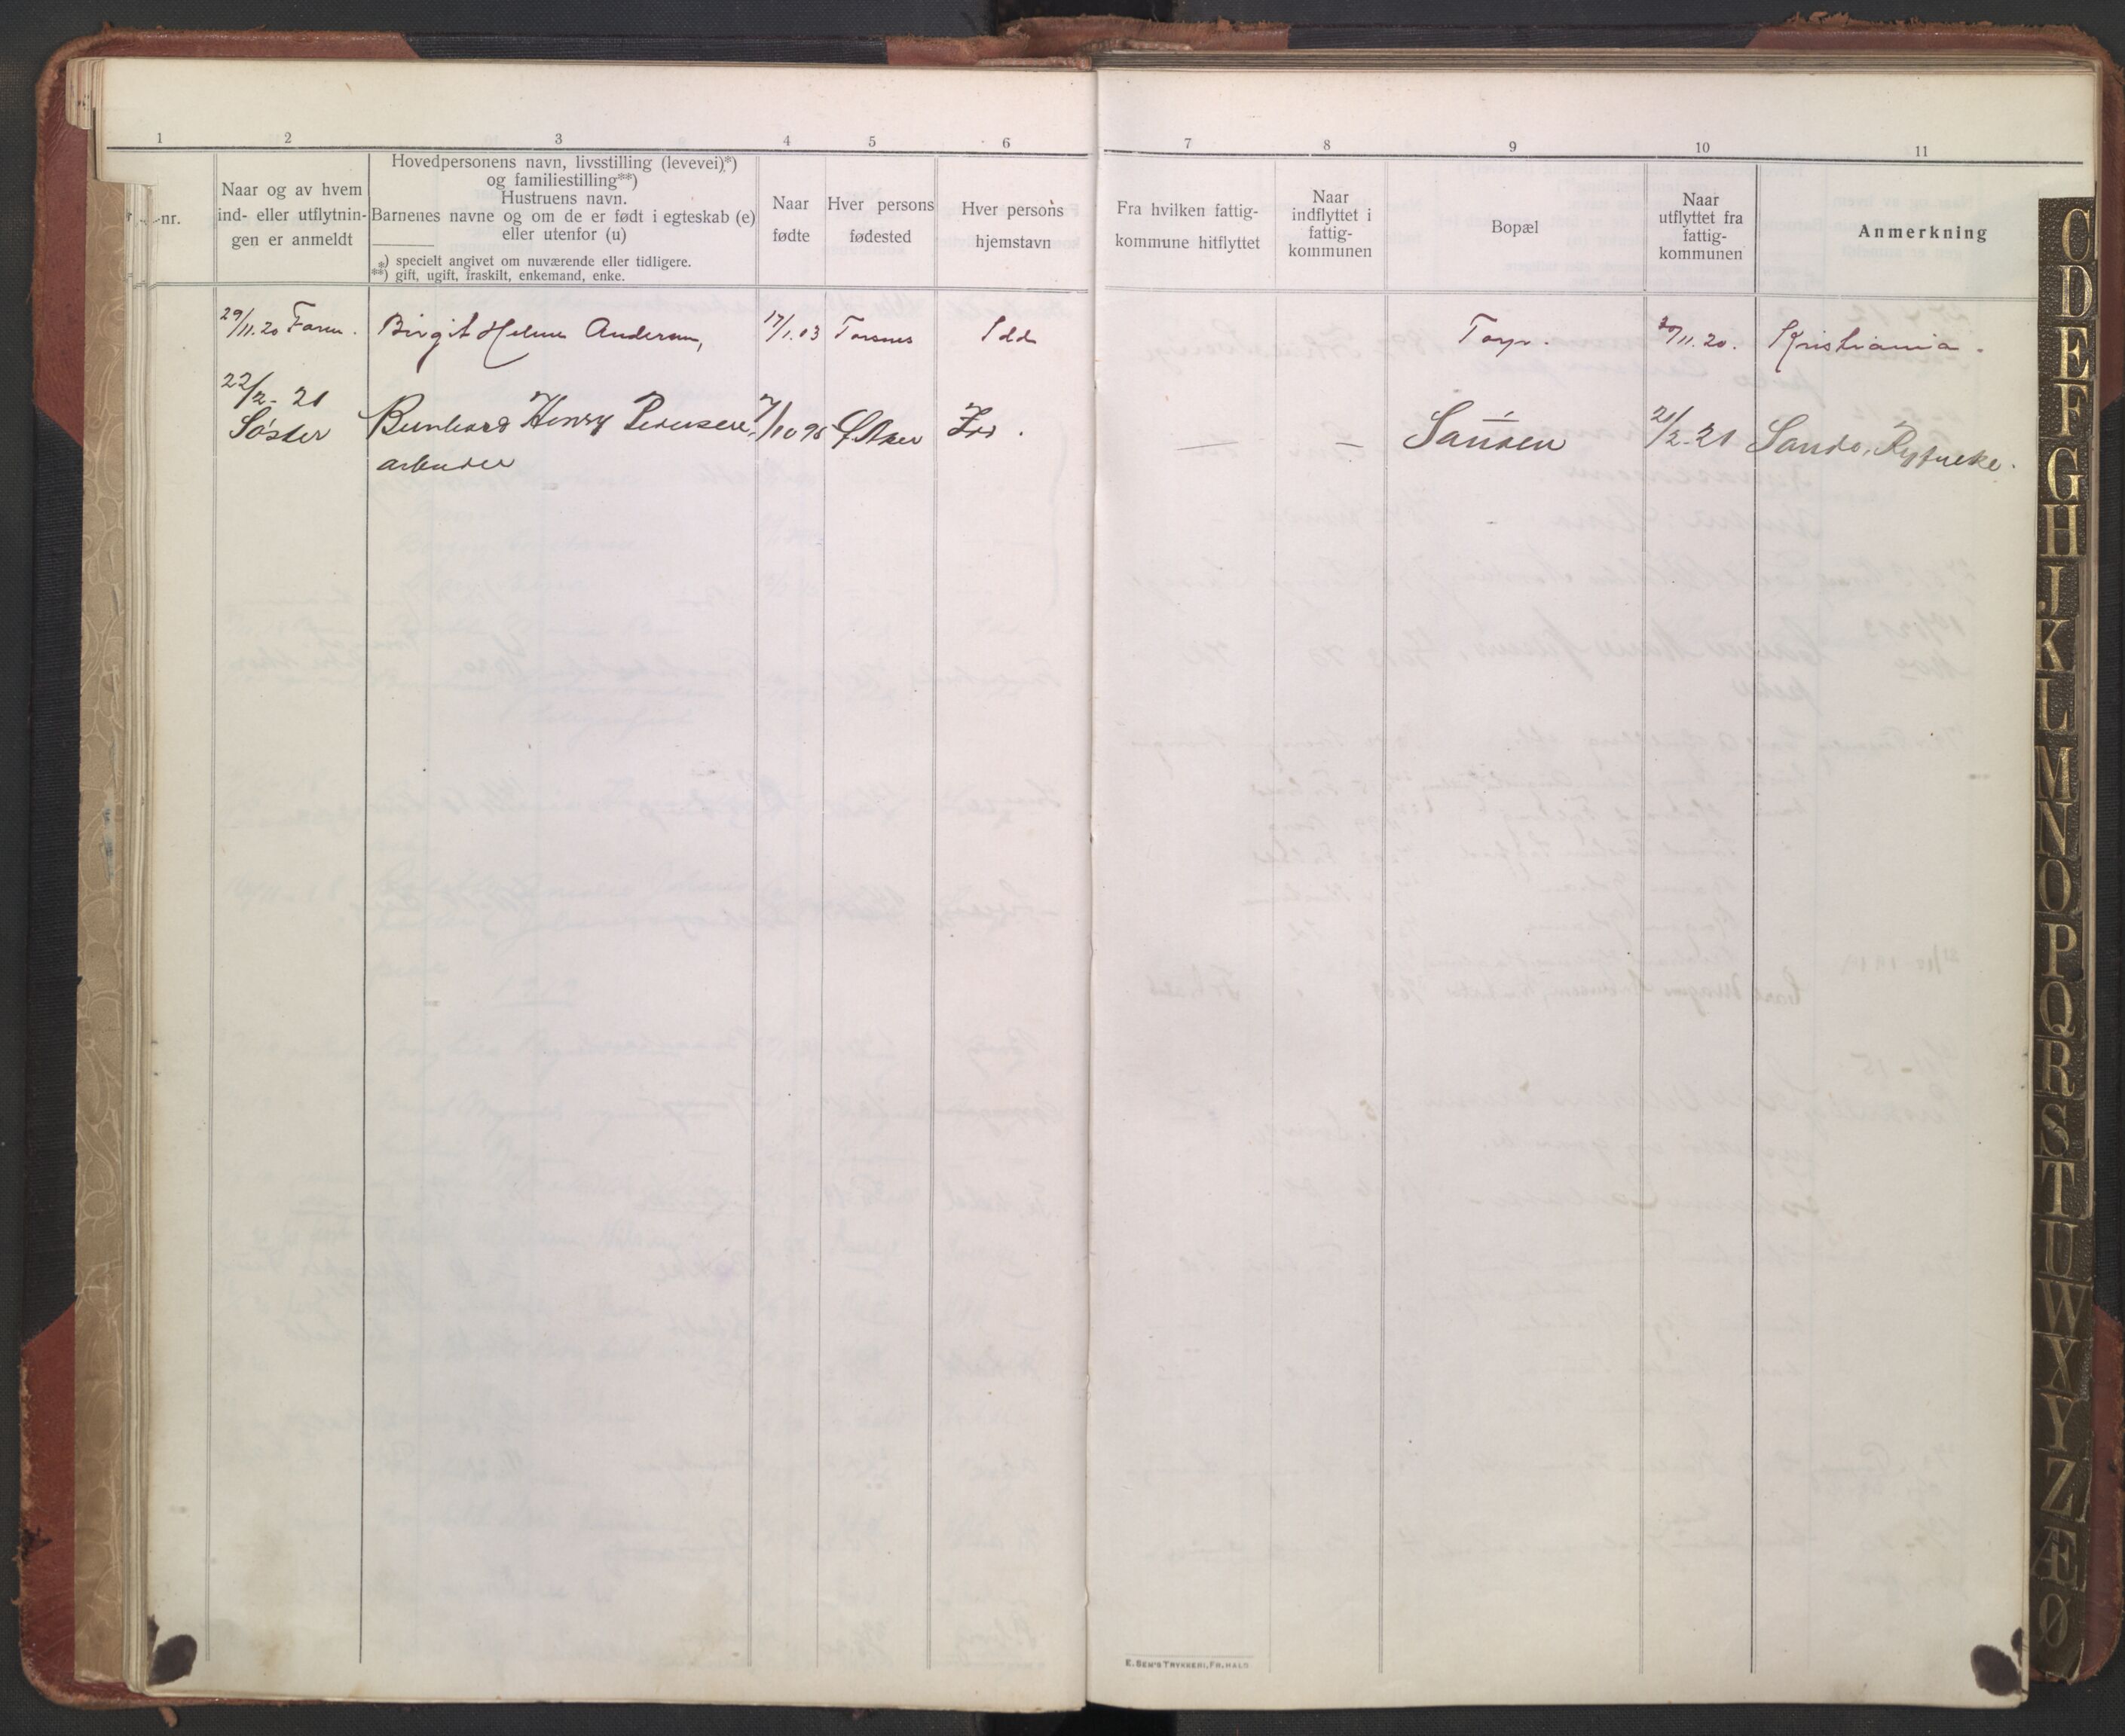 1 2 3 4 5 6 7 8 9 10 11
nr.
Naar og av hvem
ind- eller utflytnin-
gen er anmeldt
Hovedpersonens navn, livsstilling (levevei)*)
og familiestilling**)
Hustruens navn.
Barnenes navne og om de er født i egteskab (e)
eller utenfor (u)
*) specielt angivet om nuværende eller tidligere.
**) gift, ugift, fraskilt, enkemand, enke.
Naar
fødte
Hver persons
fødested
Hver persons
hjemstavn
Fra hvilken fattig-
kommune hitflyttet
Naar
indflyttet i
fattig-
kommunen
Bopæl
Naar
utflyttet fra
fattig-
kommunen
Anmerkning
29/11.20 Faren. Birgit Helene Andersen, 17/1.03 Torsnes Idd Torp. 20/11.20. Kristiania.
22/2-21
Søster Bernhard Henry Pedersen 7/10 95 Ø Aker Idd. — — Sanden 21/2-21 Sande, Ryfylke.
arbeider
E. SEM'S TRYKKERI, FR.HALD
C
D
E
F
G
H
J
K
L
M
N
O
P
Q
R
S
T
U
W
X
Y
Z
Æ
Ø